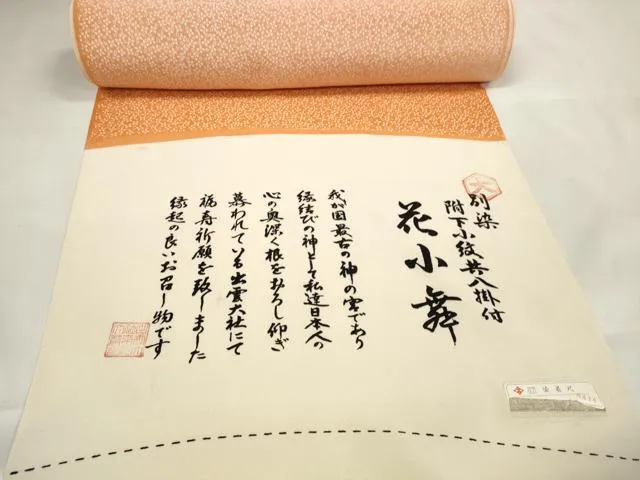 別染
附下小紋共八掛付
花小舞
我が国最古の神の宮であり
縁結びの神として私達日本人の
心の奥深く根をおろし仰ぎ
慕われている出雲大社にて
福寿祈願を致しました
縁起の良いお召し物です
大